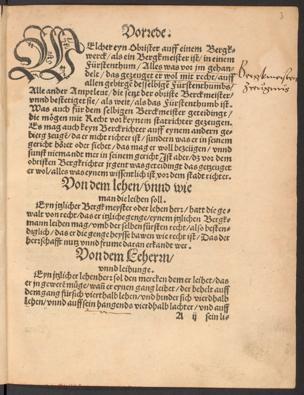 Vorrede.
WElcher eyn Obister auff einem Bergk-
werck / als ein Bergkmeister ist / in einem
Fürstenthum / Alles was vor jm gehan-
delt / das gezeuget er wol mit recht / auff
allen gebirge desselbige Fürstenthumbs /
Alle ander Amptleut / die setzt der obiste Berckmeister /
vnnd bestetiget sie / als weit / als das Fürstenthumb ist.
Was auch für dem selbigen Berckmeister geteidingt /
die mögen mit Recht vor keynem starrichter gezeugen.
Es mag auch keyn Berckrichter auff eynem andern ge-
birg zeugen / da er nicht richter ist / sundern was er in seinem
gericht höret oder sihet / das mag er woll bezeugen / vnnd
sunst niemandt mer in seinem gericht Ist aber / dz vor dem
obristen Bergkrichter jrgent was geteidingt das gezeuget
er wol / alles was eynem wissentlich ist vor dem stadt richter.
Von dem lehen / vnnd wie
man die leihen soll.
Eyn jtzlicher Bergkmeyster oder lehen herr / hatt die ge-
walt von recht / das er jtzliche genge / eynem jtzlichen Bergk-
mann leihen mag / vmb der selben fürsten recht / also besten-
diglich / das er die genge heysse bawen wie recht ist / Das der
herrschafft nutz vnnd frumme daran erkandt wer.
Von dem Leherrn /
vnnd leihunge.
Eyn jtzlicher lehenherr sol den mercken dem er leihet / das
er jn gewert müge / wañ er eynen gang leihet / der behelt auff
dem gang für sich vierdhalb lehen / vnd hinder sich vierdhalb
lehen / vnnd auff sein hangends vierdhalb lachter / vnd auff
A ij sein li-
Bergkmeisters
Zeugnis
3